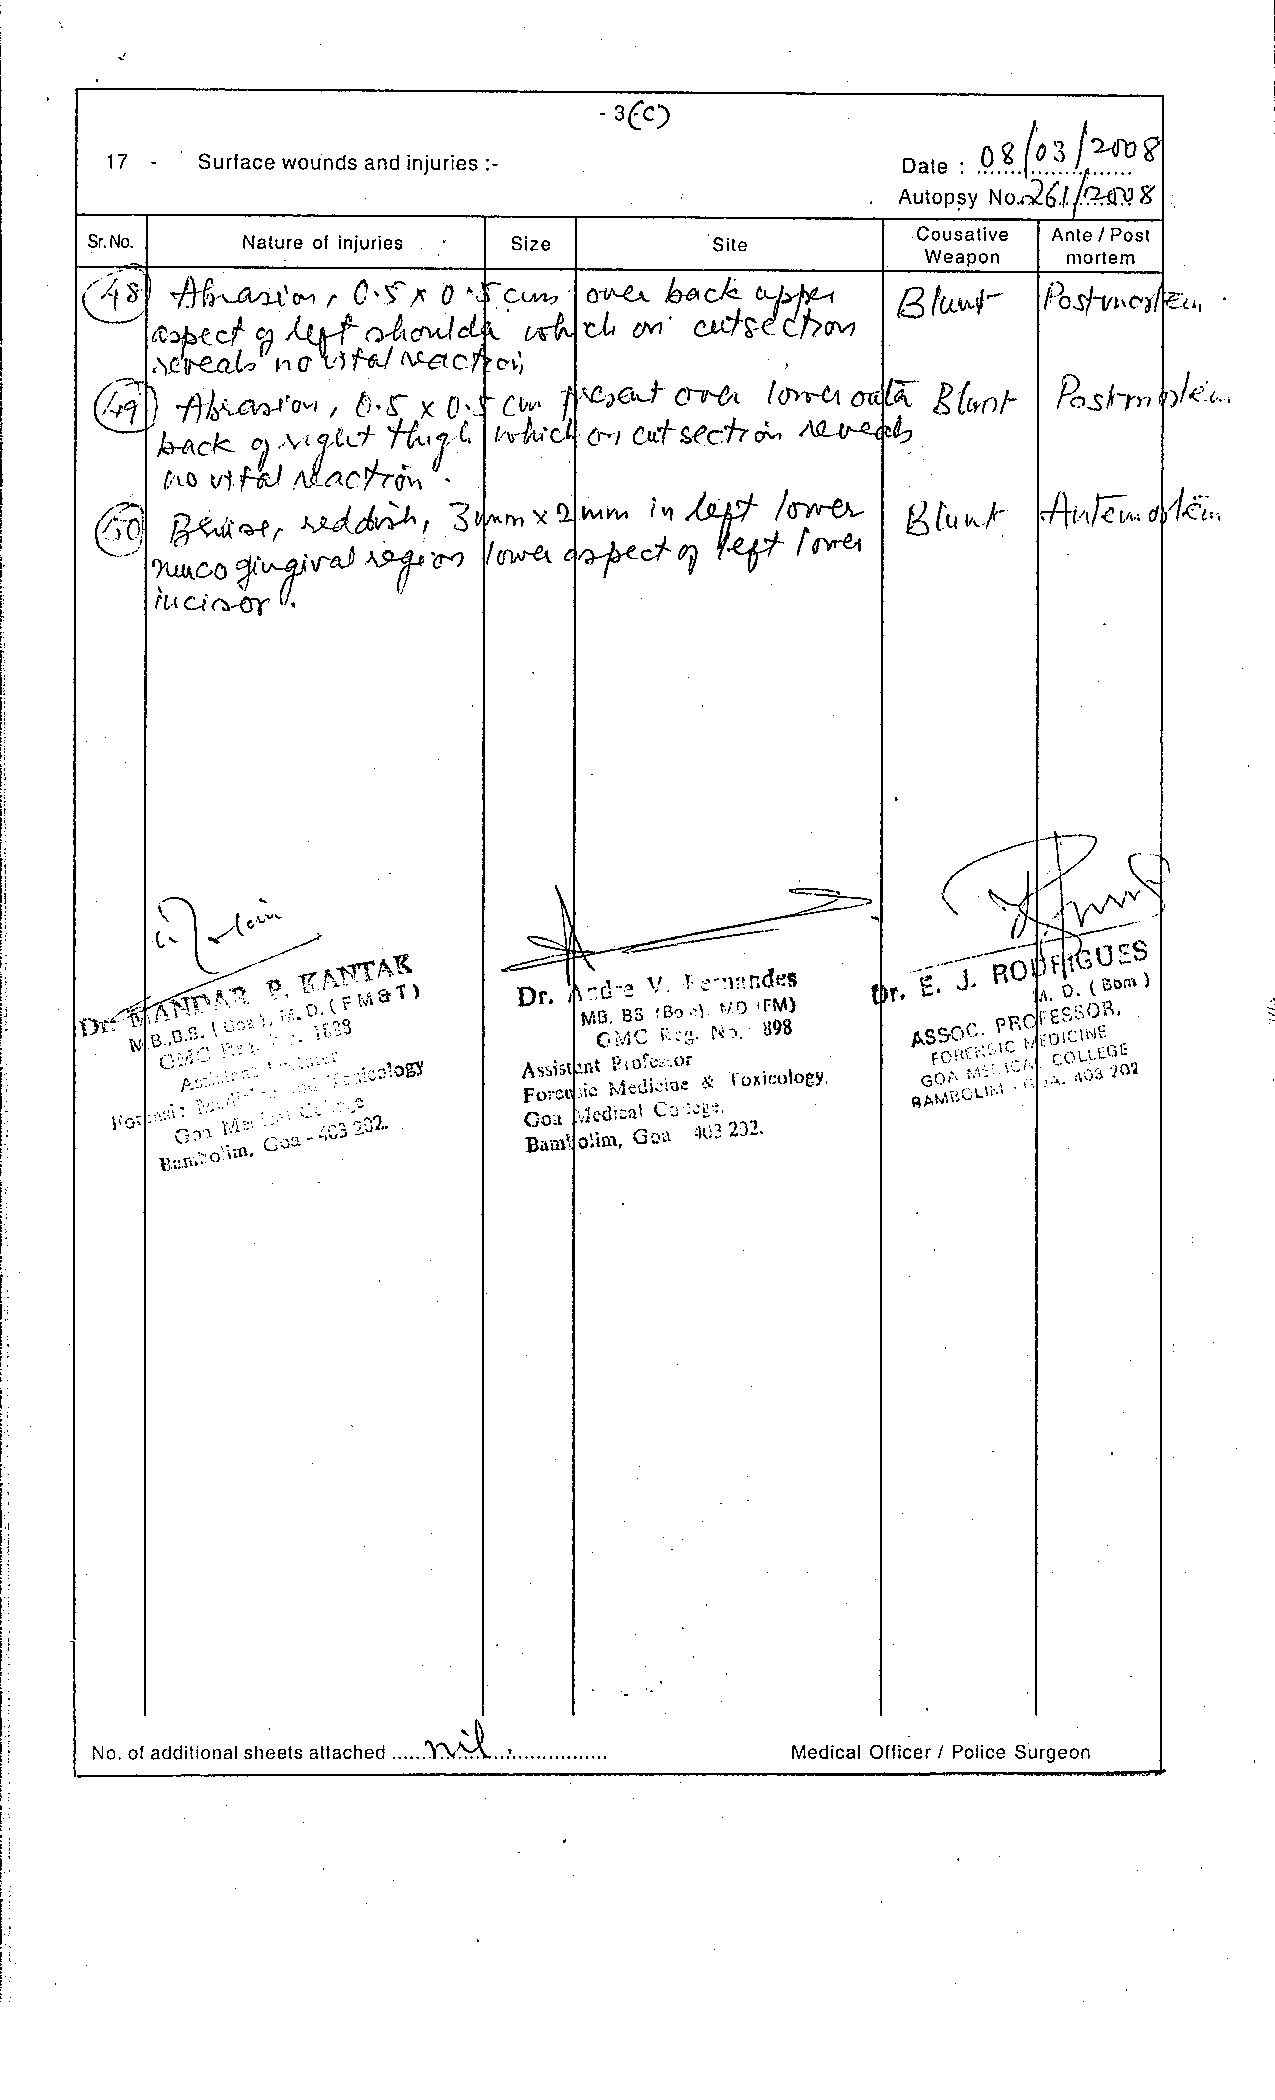 - 3(C)
17 - Surface wounds and injuries :-
Date : 08/03/2008
Autopsy No. 261/2008
Sr.No. Nature of injuries Size Site Cousative Weapon Ante / Post mortem
48 Abrasion, 0.5 x 0.5 cm over back upper Blunt Postmortem
aspect of left shoulder which on cutsection
reveals no vital reaction
49 Abrasion, 0.5 x 0.5 cm present over lower outer Blunt Postmortem
back of right thigh which on cut section reveals
no vital reaction.
50 Bruise, reddish, 3mm x 2mm in left lower Blunt Antemortem
muco gingival region lower aspect of left lower
incisor.
Dr. MANDAR P. KANTAK
M.B.,B.S. (Goa), M.D. (FM&T)
GMC Reg.
Forensic Medicine and Toxicology
Goa Medical College
Bambolim, Goa - 403 202.
Dr. Andre V. Fernandes
MB. BS (Bom) MD (FM)
GMC Reg. No. 898
Assistant Professor
Forensic Medicine & Toxicology.
Goa Medical College.
Bambolim, Goa 403 202.
Dr. E. J. RODRIGUES
M. D. (Bom)
ASSOC. PROFESSOR,
FORENSIC MEDICINE
GOA MEDICAL COLLEGE
BAMBOLIM - GOA. 403 202
No. of additional sheets attached ......nil.................
Medical Officer / Police Surgeon